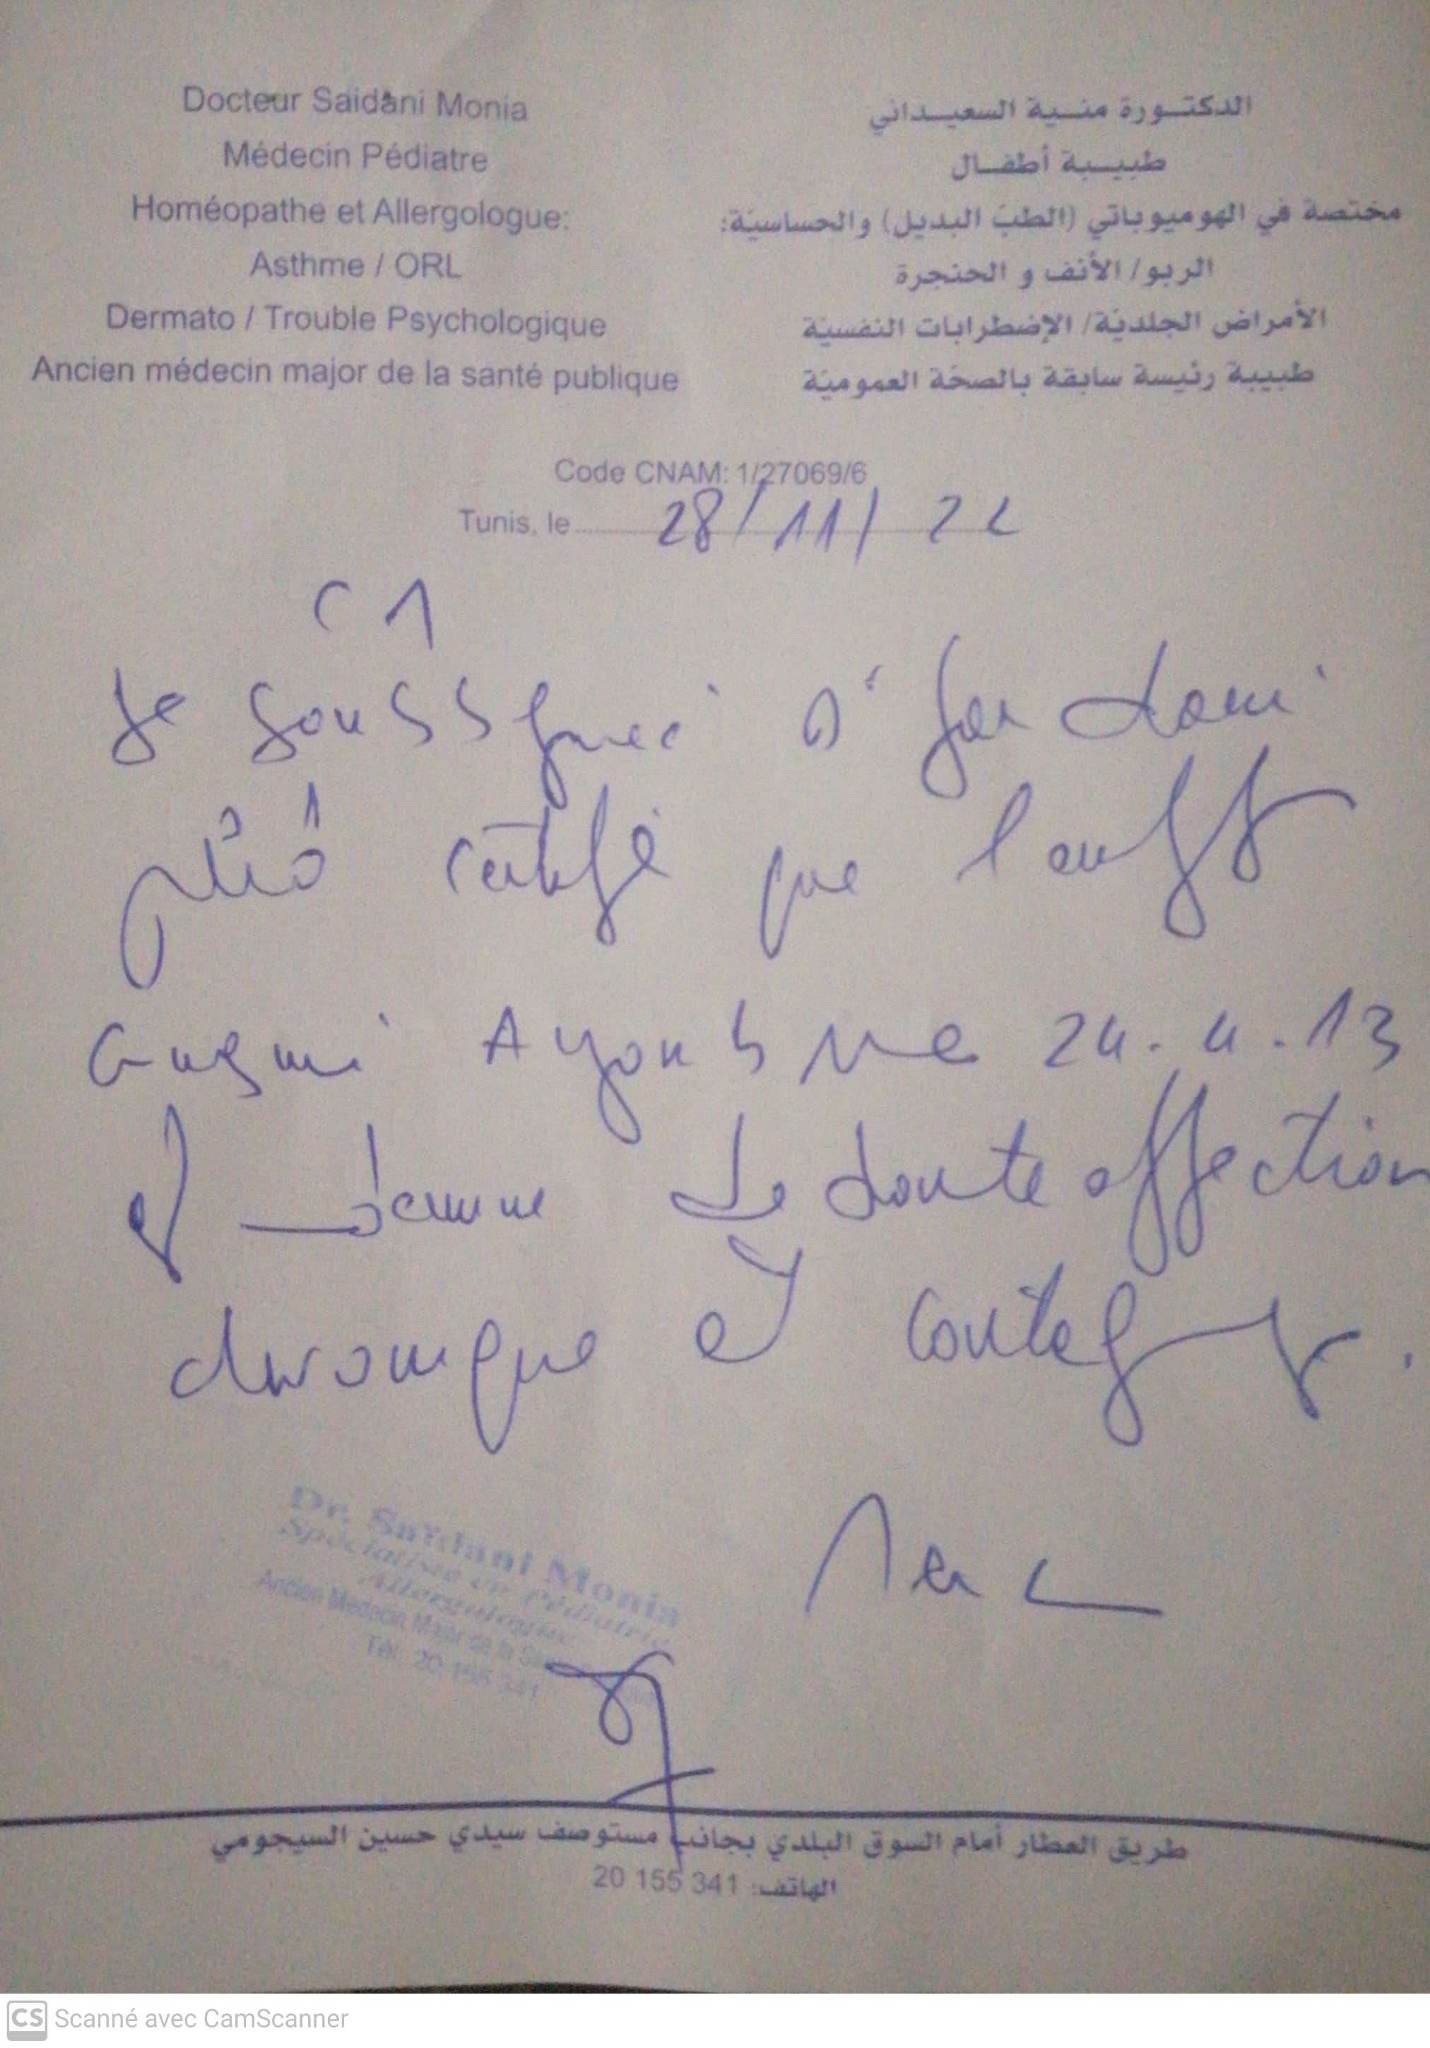 Docteur Saidani Monia
Médecin Pédiatre
Homéopathe et Allergologue:
Asthme / ORL
Dermato / Trouble Psychologique
Ancien médecin major de la santé publique
الدكتورة منية السعيداني
طبيبة أطفال
مختصة في الهوميوباتي (الطبّ البديل) والحساسيّة:
الربو/ الأنف و الحنجرة
الأمراض الجلديّة/ الإضطرابات النفسيّة
طبيبة رئيسة سابقة بالصحّة العموميّة
Code CNAM: 1/27069/6
Tunis, le 28/11/22
Je soussigné
certifie que l'enfant
Ayoub né 24.4.13
et indemne de toute affection
chronique et contagieuse.
Dr. Saïdani Monia
Spécialiste en Pédiatrie
Allergologue
Ancien Médecin Major de la
Tél: 20 155 341
طريق العطار أمام السوق البلدي بجانب مستوصف سيدي حسين السيجومي
الهاتف: 20 155 341
CS Scanné avec CamScanner